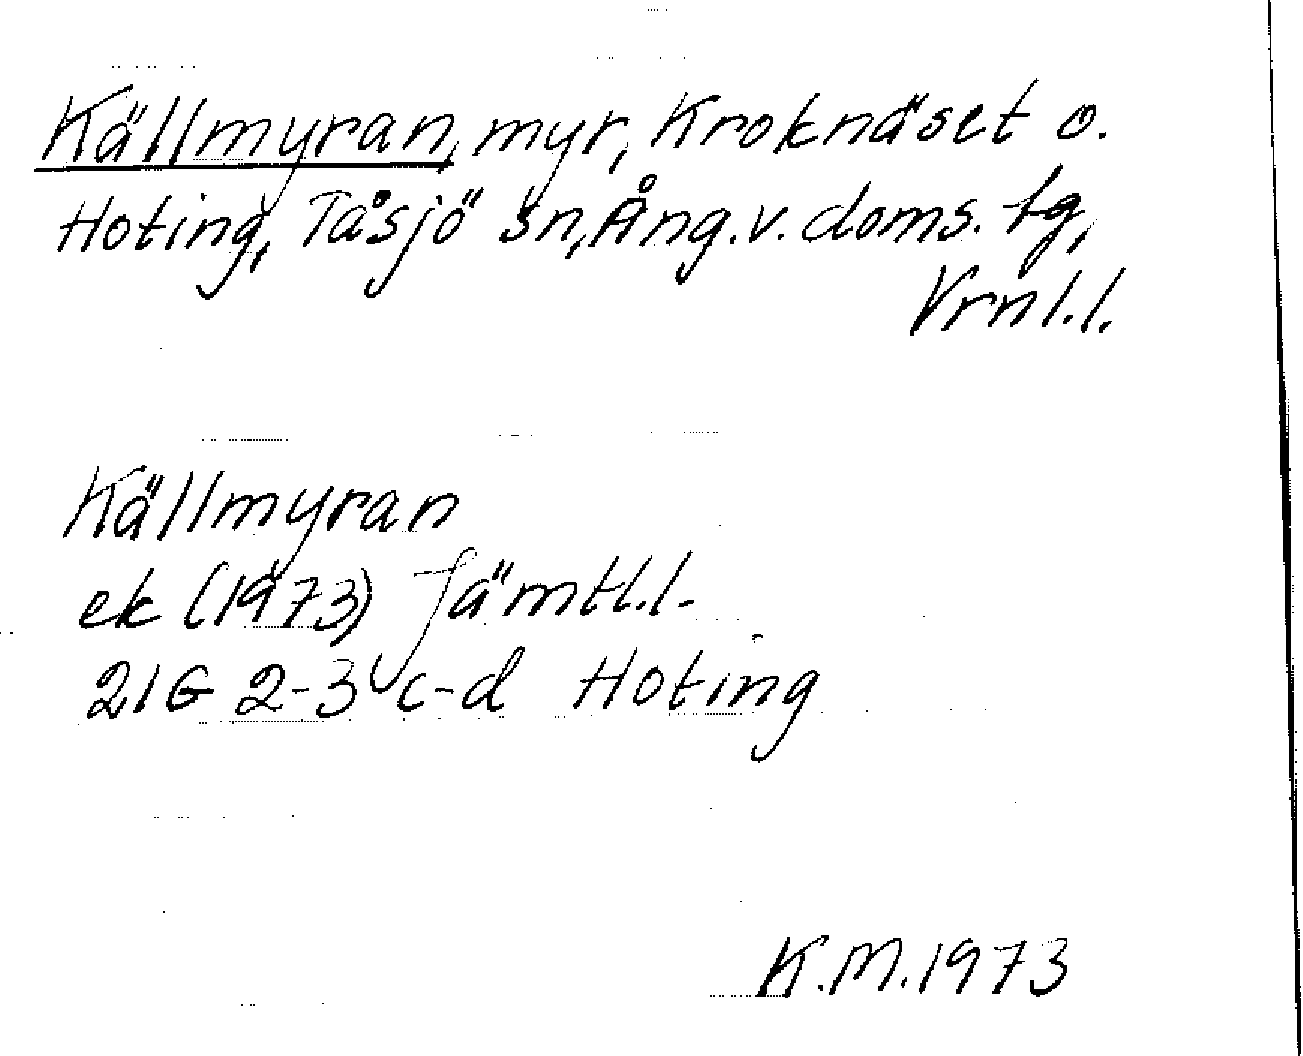 Källmyran, myr, Kroknäset o.
Hoting, Tåsjö sn, Ång. v. doms. tg,
Vrnl.l.
Källmyran
ek (1973) Jämtl.l.
21G 2-3 c-d Hoting
K.M. 1973